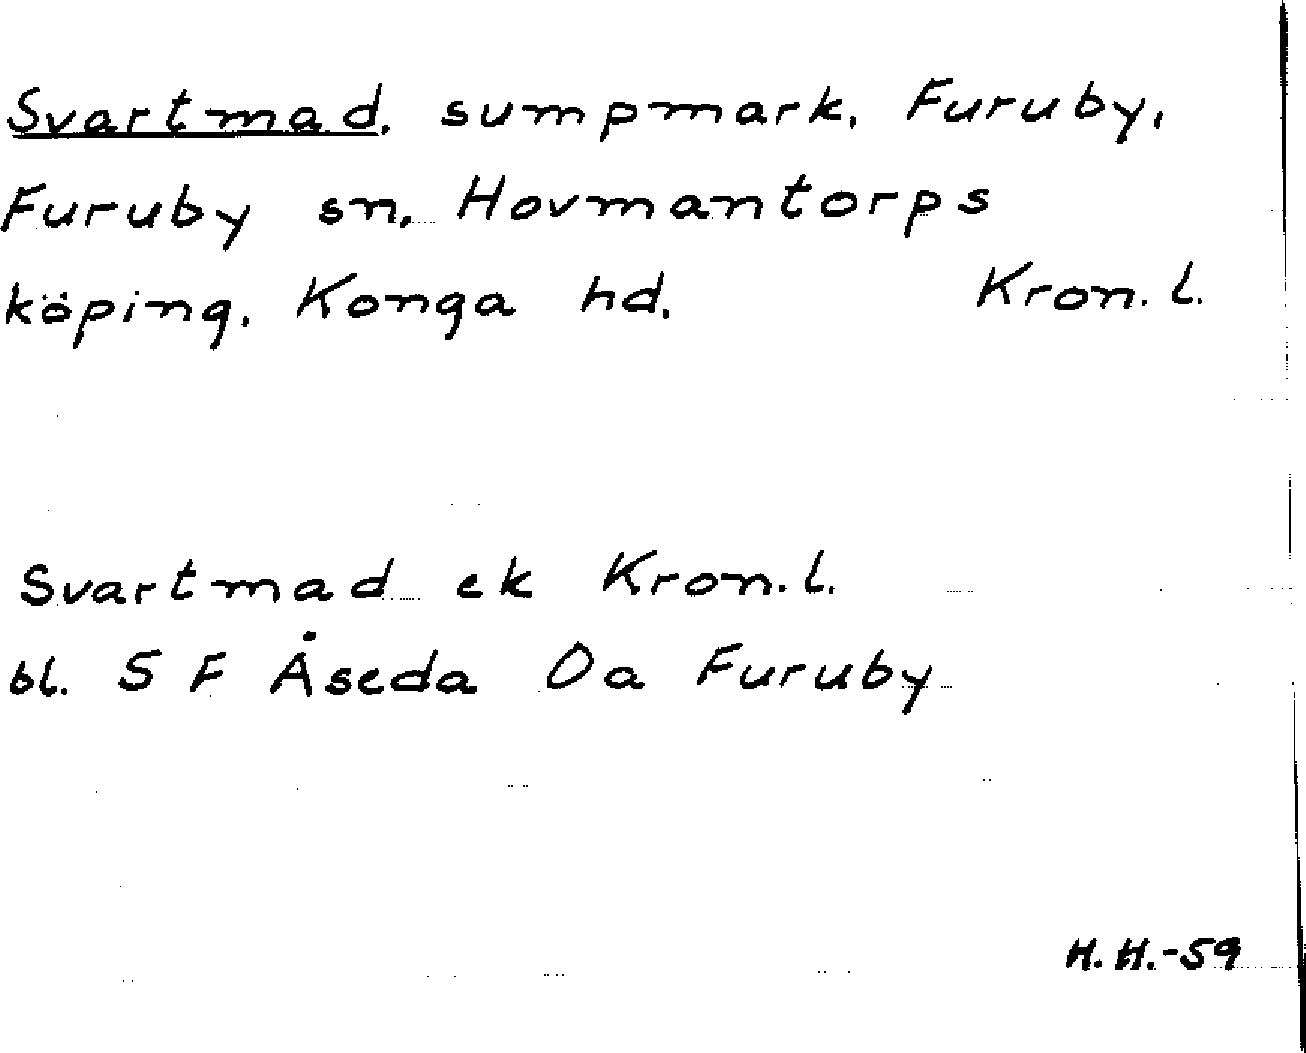 Svartmad, sumpmark, Furuby,
Furuby sn, Hovmantorps
köping, Konga hd. Kron. l.
Svartmad ek Kron. l.
bl. 5 F Åseda Oa Furuby
H. H. -59